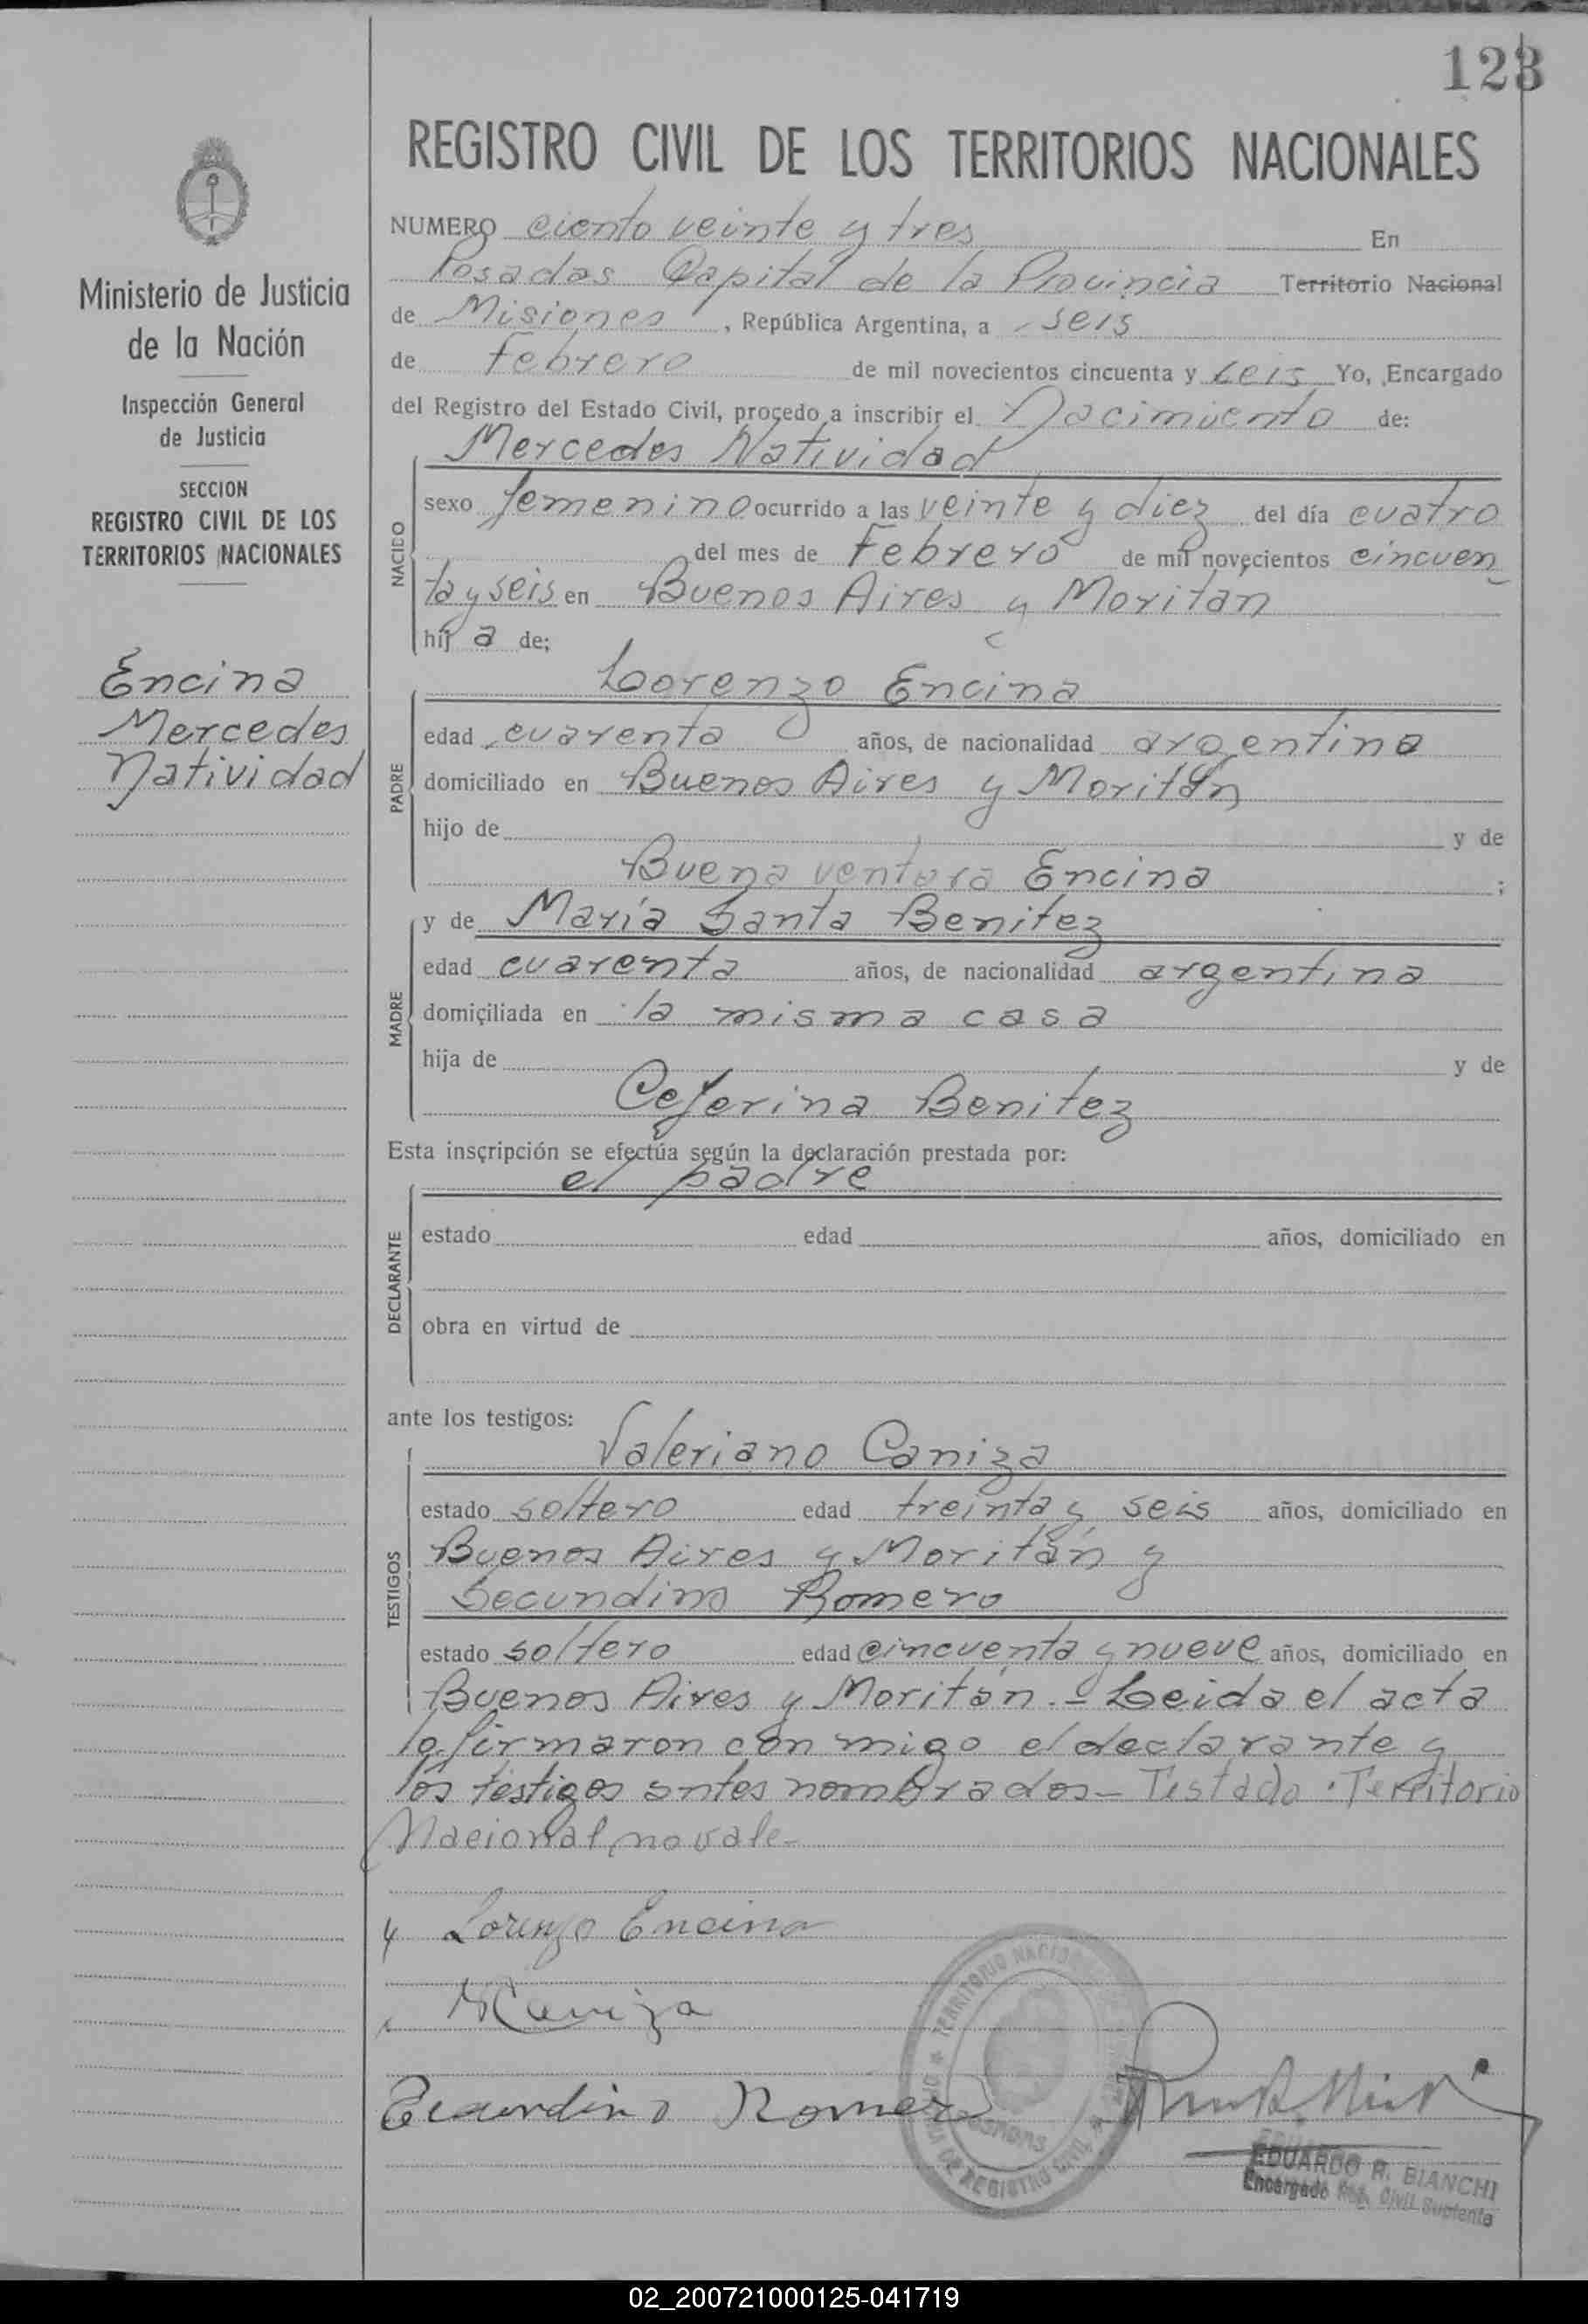 123
REGISTRO CIVIL DE LOS TERRITORIOS NACIONALES
Ministerio de Justicia
de la Nación
Inspección General
de Justicia
SECCION
REGISTRO CIVIL DE LOS
TERRITORIOS NACIONALES
Encina
Mercedes
Natividad
NUMERO ciento veinte y tres En
Posadas Capital de la Provincia Territorio Nacional
de Misiones, República Argentina, a seis
de Febrero de mil novecientos cincuenta y seis Yo, Encargado
del Registro del Estado Civil, procedo a inscribir el Nacimiento de:
Mercedes Natividad
NACIDO
sexo femenino ocurrido a las veinte y diez del día cuatro
del mes de Febrero de mil novecientos cincuen
ta y seis en Buenos Aires y Moritan
hij a de;
Lorenzo Encina
PADRE
edad cuarenta años, de nacionalidad argentina
domiciliado en Buenos Aires y Moritán
hijo de y de
Buena ventura Encina ;
y de María Santa Benitez
MADRE
edad cuarenta años, de nacionalidad argentina
domiciliada en la misma casa
hija de y de
Ceferina Benitez
Esta inscripción se efectúa según la declaración prestada por:
el padre
DECLARANTE
estado edad años, domiciliado en
obra en virtud de
ante los testigos:
Valeriano Caniza
TESTIGOS
estado soltero edad treinta y seis años, domiciliado en
Buenos Aires y Moritán y
Secundino Romero
estado soltero edad cincuenta y nueve años, domiciliado en
Buenos Aires y Moritán.- Leida el acta
la firmaron con migo el declarante y
los testigos antes nombrados- Testado: Territorio
Nacional, no vale-
Lorenzo Encina
Caniza
Secundino Romero
TERRITORIO NACIONAL
POSADAS
OFICINA DE REGISTRO CIVIL
EDUARDO R. BIANCHI
Encargado Reg. Civil Suplente
02_200721000125-041719